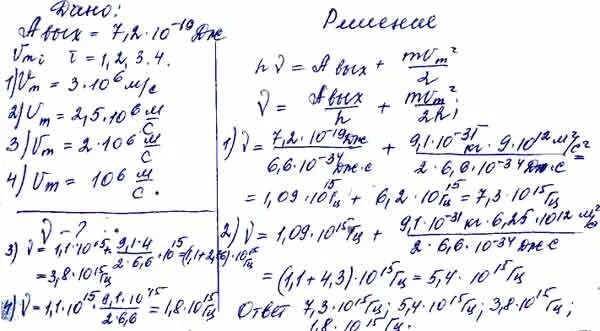 Дано:
Aвых = 7,2·10⁻¹⁹ Дж
Vmi i = 1,2,3.4.
1) Vm = 3·10⁶ м/с
2) Vm = 2,5·10⁶ м/с
3) Vm = 2·10⁶ м/с
4) Vm = 10⁶ м/с
ν - ?
3) ν = 1,1·10¹⁵ + (9,1·4)/(2·6,6)·10¹⁵ = (1,1+2,76)·10¹⁵ Гц
= 3,8·10¹⁵ Гц
4) ν = 1,1·10¹⁵ · (9,1·10⁻¹⁵)/(2·6,6) = 1,8·10¹⁵ Гц
Решение
hν = Aвых + mVm²/2
ν = Aвых/h + mVm²/2h;
1) ν = (7,2·10⁻¹⁹ Дж)/(6,6·10⁻³⁴ Дж·с) + (9,1·10⁻³¹ кг·9·10¹² м²/с²)/(2·6,6·10⁻³⁴ Дж·с) =
= 1,09·10¹⁵ Гц + 6,2·10¹⁵ Гц = 7,3·10¹⁵ Гц
2) ν = 1,09·10¹⁵ Гц + (9,1·10⁻³¹ кг·6,25·10¹² м²/с²)/(2·6,6·10⁻³⁴ Дж·с)
= (1,1+4,3)·10¹⁵ Гц = 5,4·10¹⁵ Гц
Ответ 7,3·10¹⁵ Гц; 5,4·10¹⁵ Гц; 3,8·10¹⁵ Гц;
1,8·10¹⁵ Гц.